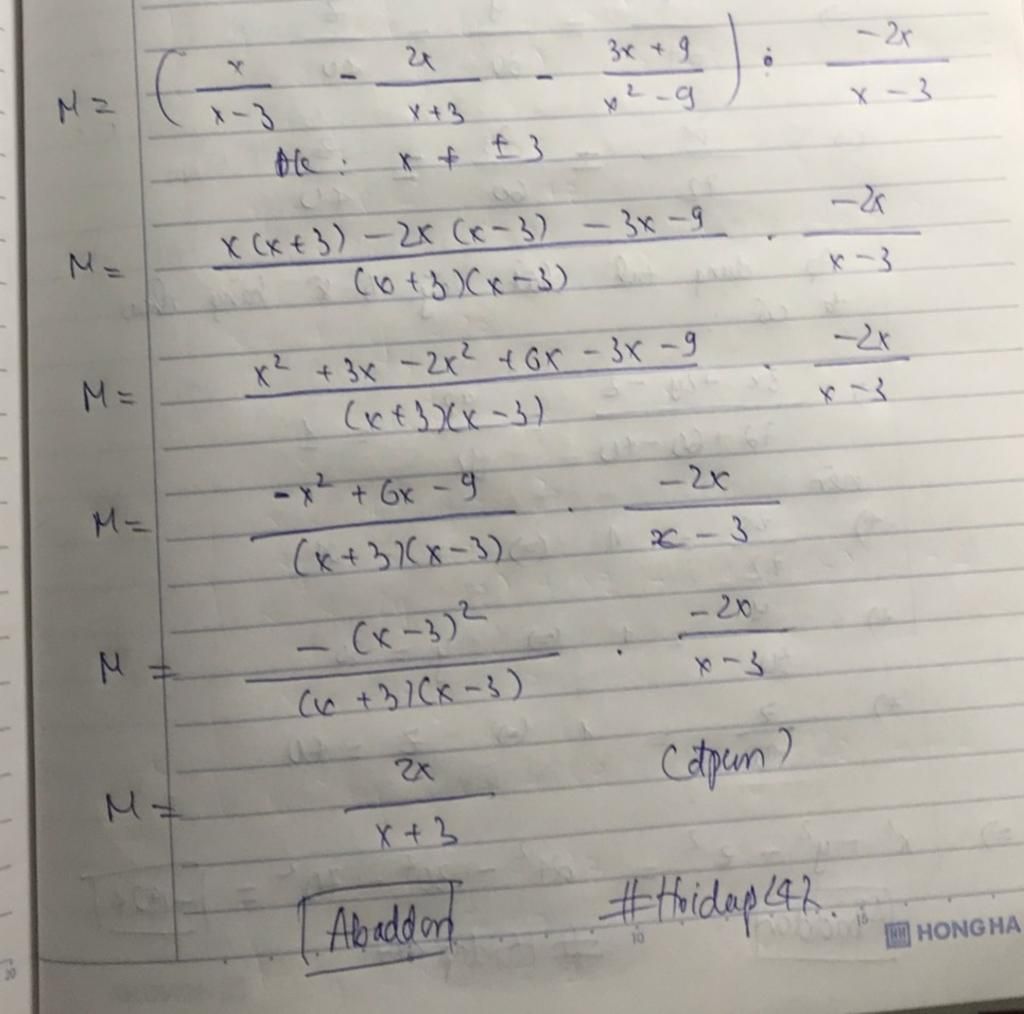 M = ( x/(x-3) - 2x/(x+3) - (3x+9)/(x²-9) ) : -2x/(x-3)
Đk : x ≠ ±3
M = (x(x+3) - 2x(x-3) - 3x - 9)/((x+3)(x-3)) . -2x/(x-3)
M = (x² + 3x - 2x² + 6x - 3x - 9)/((x+3)(x-3)) . -2x/(x-3)
M = (-x² + 6x - 9)/((x+3)(x-3)) . -2x/(x-3)
M = -(x-3)²/((x+3)(x-3)) . -2x/(x-3)
M = 2x/(x+3) (đpcm)
Abaddon #Hoidap247.
10 15 HONG HA
20